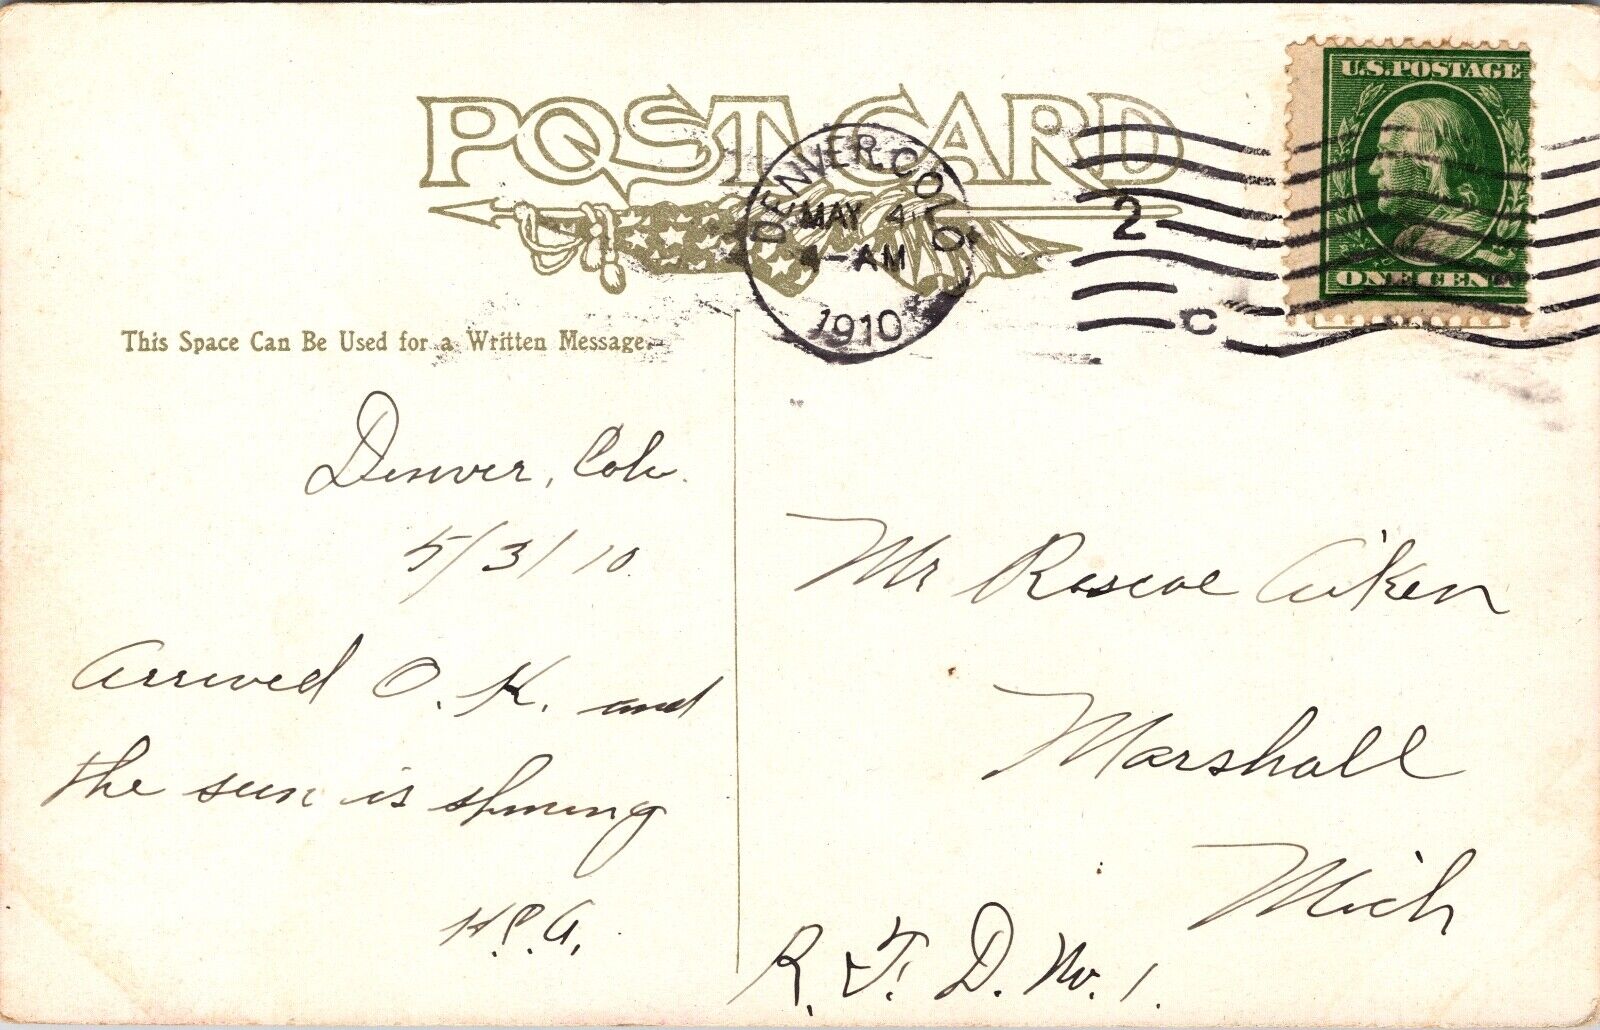 POST CARD
DENVER, COLO.
MAY 4
4-AM
1910
2
C
U.S. POSTAGE
ONE CENT
This Space Can Be Used for a Written Message.
Denver, Colo.
5/3/10.
Arrived O.K. and
the sun is shining
H.P.A.
Mr Roscoe Aiken
Marshall
Mich
R.F.D. No. 1.